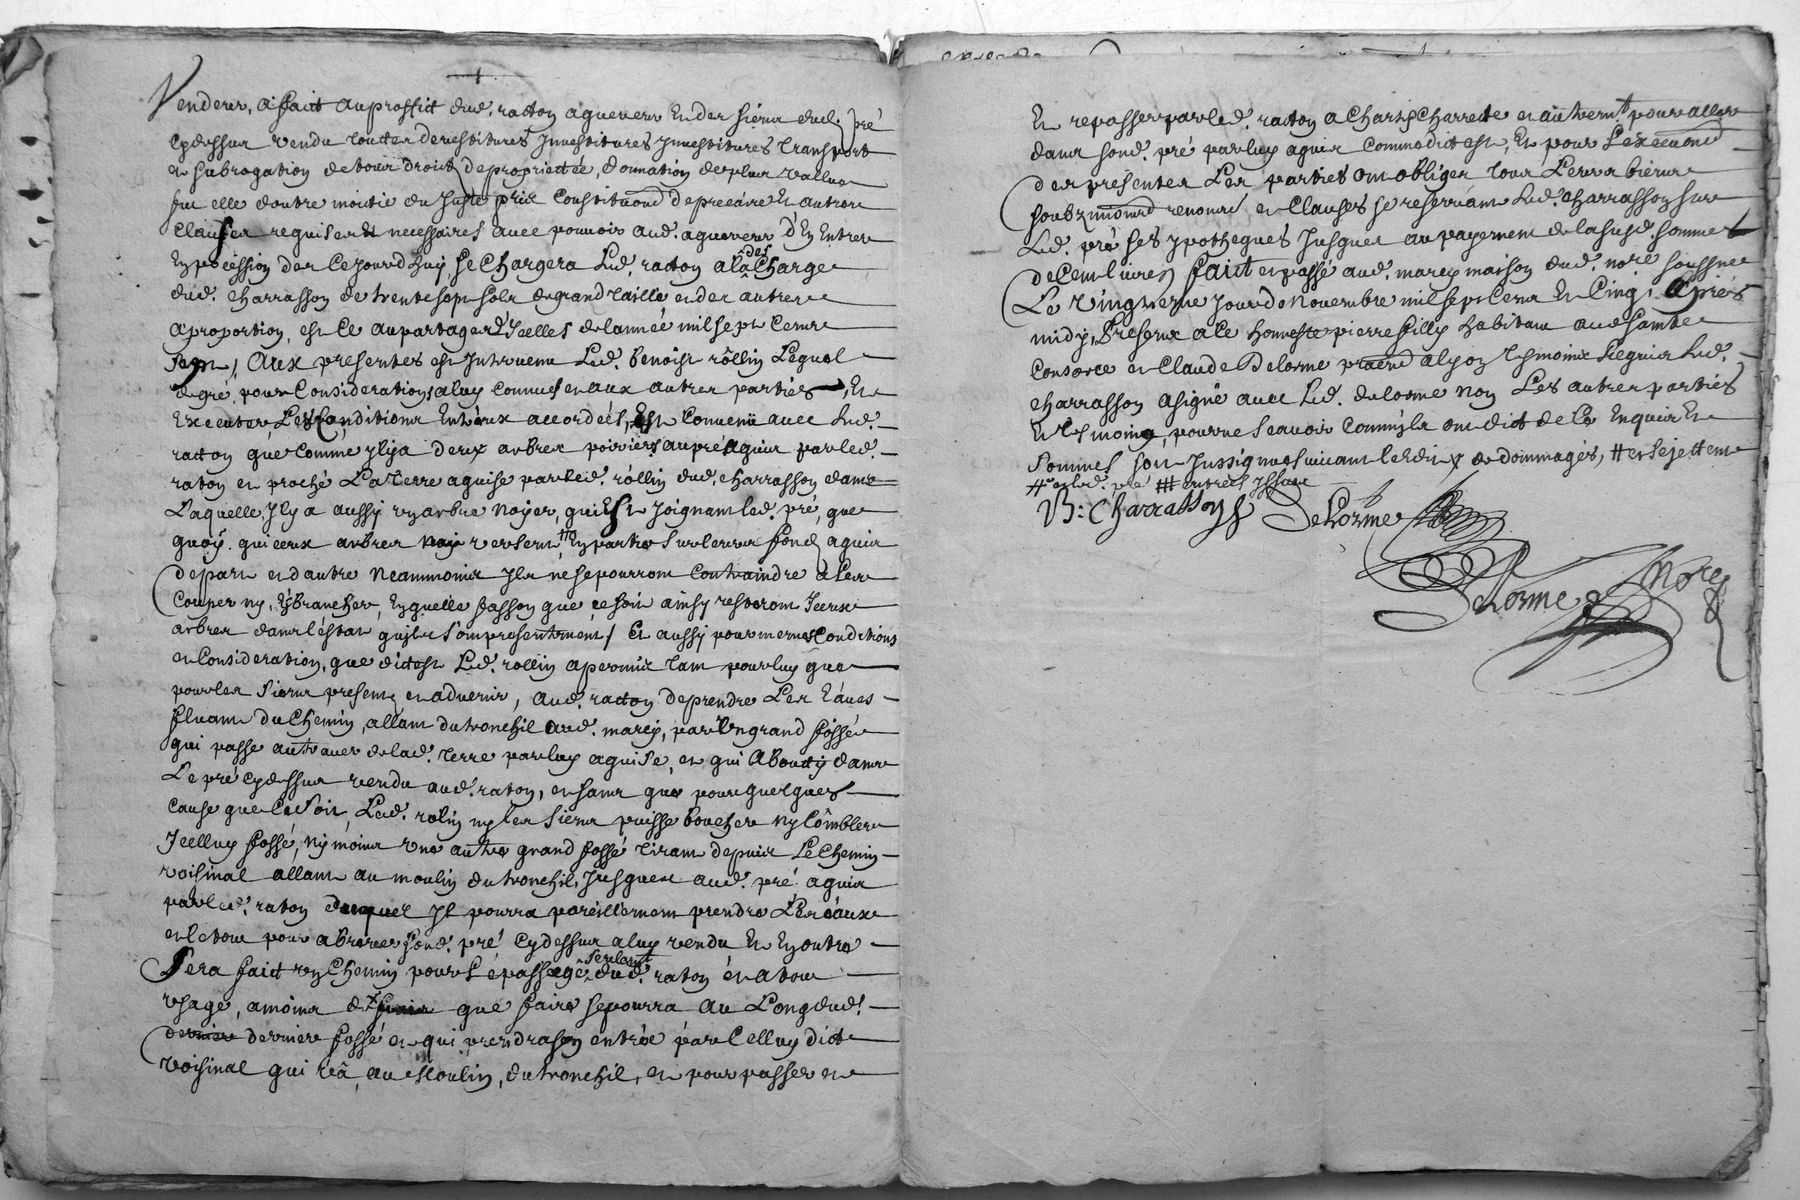 Vendeur, a faict au proffict dud. ratton aquereur et des siens dud. pré
cydessus vendu touttes devestitures Investitures transport
et subrogation de tous droits de propriettée, donnation de plus vallue
fut elle d'outre moitié du Juste prix Constitution de precaire et autres
Clauses requises et necessaires avec pouvoir aud. aquereur d'En Entrer
En pocession des Ce Jourd huy Se Chargera Led. ratton a la des Charge
dud. charrasson de trente sept sols de grand taille et des autres
a proportion, est Ce au partager d'Icelles de lannée mil sept Cents
sept / Aux presentes est Intervenu Led. benoist rôllin Lequel
de gré, pour Considerations a luy connues et aux autres parties, En
Executer Les Conditions Entreux accordées, Est Convenu avec Led.
ratton que Comme Il y a deux arbres poiriers au pré aquis par led.
raton et proche La terre aquise par led. rôllin dud. charrasson dans
Laquelle, Il y a aussy un arbre Noyer, qui Est Joignant led. pré, que
quoy que iceux arbres versent En partie sur leurs fonds aquis
de part et d'autre Neammoins Ils ne se pourront Contraindre a Les
Couper ny, Esbrancher, En quelle fasson que ce soit ainsy resteront Iceux
arbres dans l'estat quils sont presentement / Et aussy pour mesmes Conditions
et Consideration, que dict est Led. rollin a permis tant pour luy que
pour les siens presents et advenir, aud. ratton de prendre Les Eaues
fluant du Chemin, allant du tronchil aud. marcy, par Un grand fossé
qui passe au travers de lad. terre par luy aquise, et qui Aboutty dans
Le pré cydessus vendu aud. raton, et sans que pour quelques
cause que Ce soit, Led. rolin ny les siens puisse boucher ny Combler
Icelluy fossé, ny moins une autre grand fossé tirant depuis Le Chemin
voisinal allant au moulin du tronchil, Jusques aud. pré aquis
par led. raton duquel Il pourra pareillement prendre Les eaux
et le tout pour abrever sond. pré cydessus a luy vendu Et En outre
Sera faict un Chemin pour Le passage seulement dud. raton et a tout
usage, a moins de que faire se pourra au Long dud.
derniere fossé et qui prendra son entrée par Celluy dict
voisinal qui va, au Moulin, du tronchil, et pour passer et
Et repasser par led. ratton a Chars Charrette et autrem.t pour aller
dans sond. pré par luy aquis Comme dict est, Et pour L'execution
des presentes Les parties ont obliges tous Leurs biens
soubzmissions renoncé et Clauses se reservant Led. charrasson sur
Led. pré ses ypotheques Jusques au payement de la susd. somme
de Cent livres faict et passé aud. marcy maison dud. no.re soussigné
Le Vingtieme Jour de Novembre mil sept Cents Et Cinq, Apres
midy, Presents a Ce honneste pierre filly habitant aud sainte
Consorce et Claude Delorme tesmoins Requis Led.
charrasson a signé avec Led. delorme non Les autres parties
Et tesmoing, pour ne Scavoir Comm'Ils ont dict de Ce Enquis Et
Sommes son Jussignes suivant de dommages, # et se jettent
# et led. pré ### entrées Issue
B: Charrasson Delorme
Delorme Nore